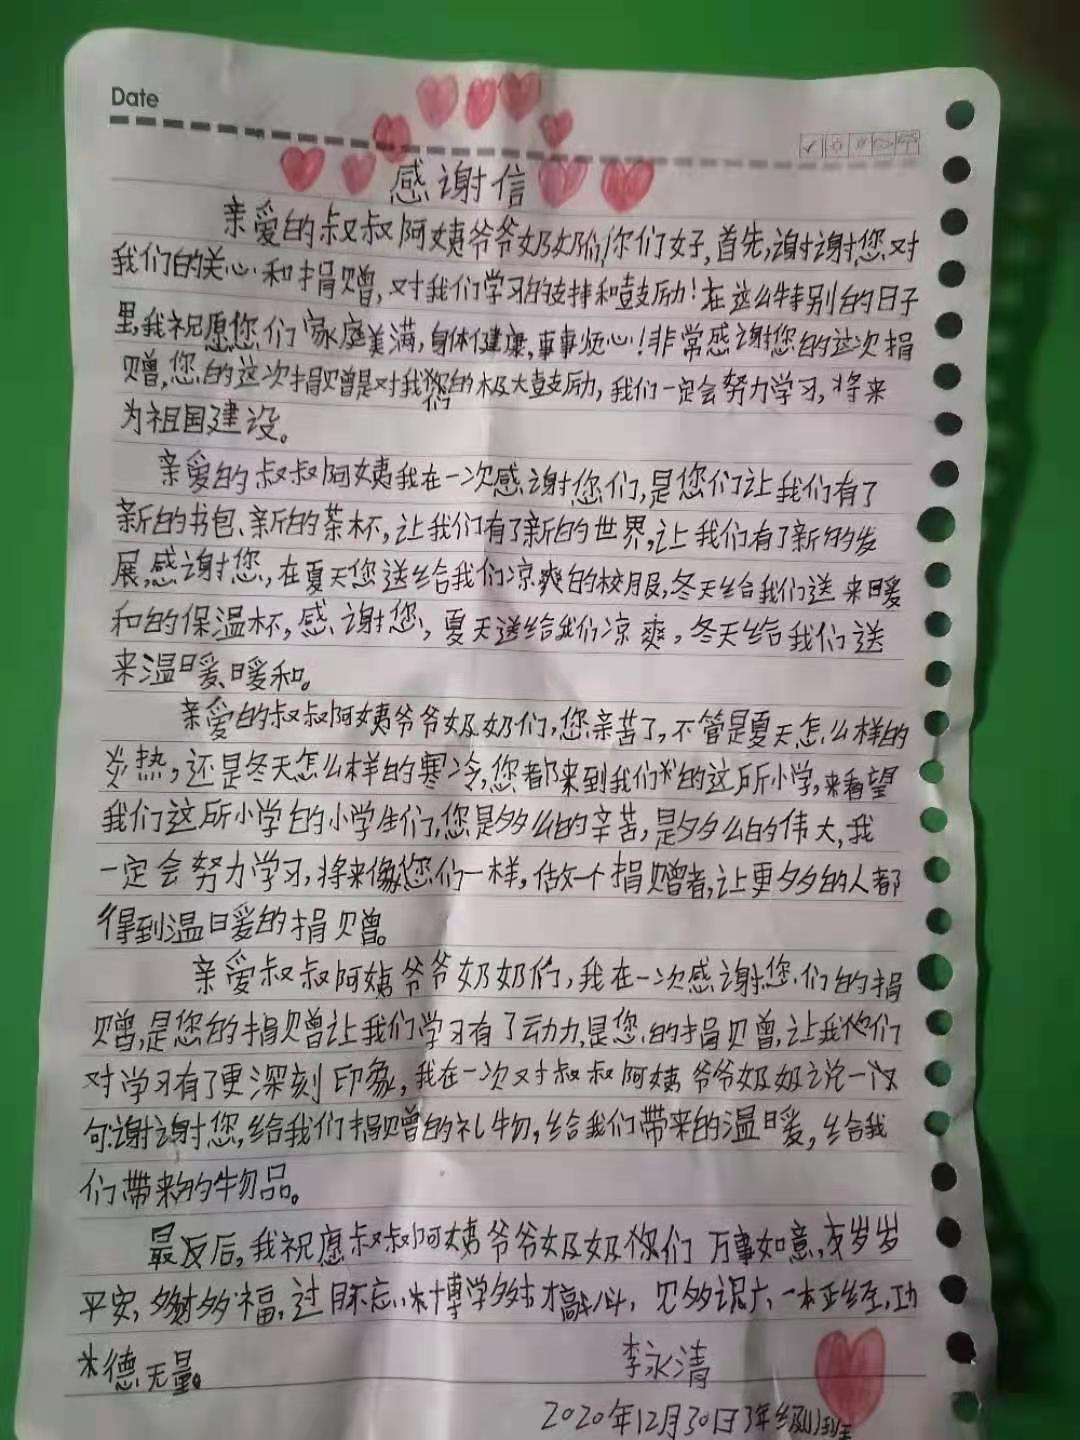 Date
感谢信
亲爱的叔叔阿姨爷爷奶奶们你们好,首先,谢谢您对
我们的关心和捐赠,对我们学习的支持和鼓励!在这么特别的日子
里,我祝愿您们家庭美满,身体健康,事事烦心!非常感谢您的这次捐
赠,您的这次捐赠是对我们的极大鼓励,我们一定会努力学习,将来
为祖国建设。
亲爱的叔叔阿姨我在一次感谢您们,是您们让我们有了
新的书包、新的茶杯,让我们有了新的世界,让我们有了新的发
展,感谢您,在夏天您送给我们凉爽的校服,冬天给我们送来暖
和的保温杯,感谢您,夏天送给我们凉爽,冬天给我们送
来温暖、暖和。
亲爱的叔叔阿姨爷爷奶奶们,您亲苦了,不管是夏天怎么样的
炎热,还是冬天怎么样的寒冷,您都来到我们的这所小学,来看望
我们这所小学的小学生们,您是多么的辛苦,是多么的伟大,我
一定会努力学习,将来像您们一样,做一个捐赠者,让更多的人都
得到温暖的捐赠。
亲爱叔叔阿姨爷爷奶奶们,我在一次感谢您们的捐
赠,是您的捐赠让我们学习有了动力,是您的捐赠,让我们
对学习有了更深刻印象,我在一次对叔叔阿姨爷爷奶奶说一
句:谢谢您,给我们捐赠的礼物,给我们带来的温暖,给我
们带来的物品。
最后,我祝愿叔叔阿姨爷爷奶奶你们万事如意,岁岁
平安,多财多福,过目不忘,博学多才,才高八斗,见多识广,一本正经,功
德无量。
李永清
2020年12月30日3年级班